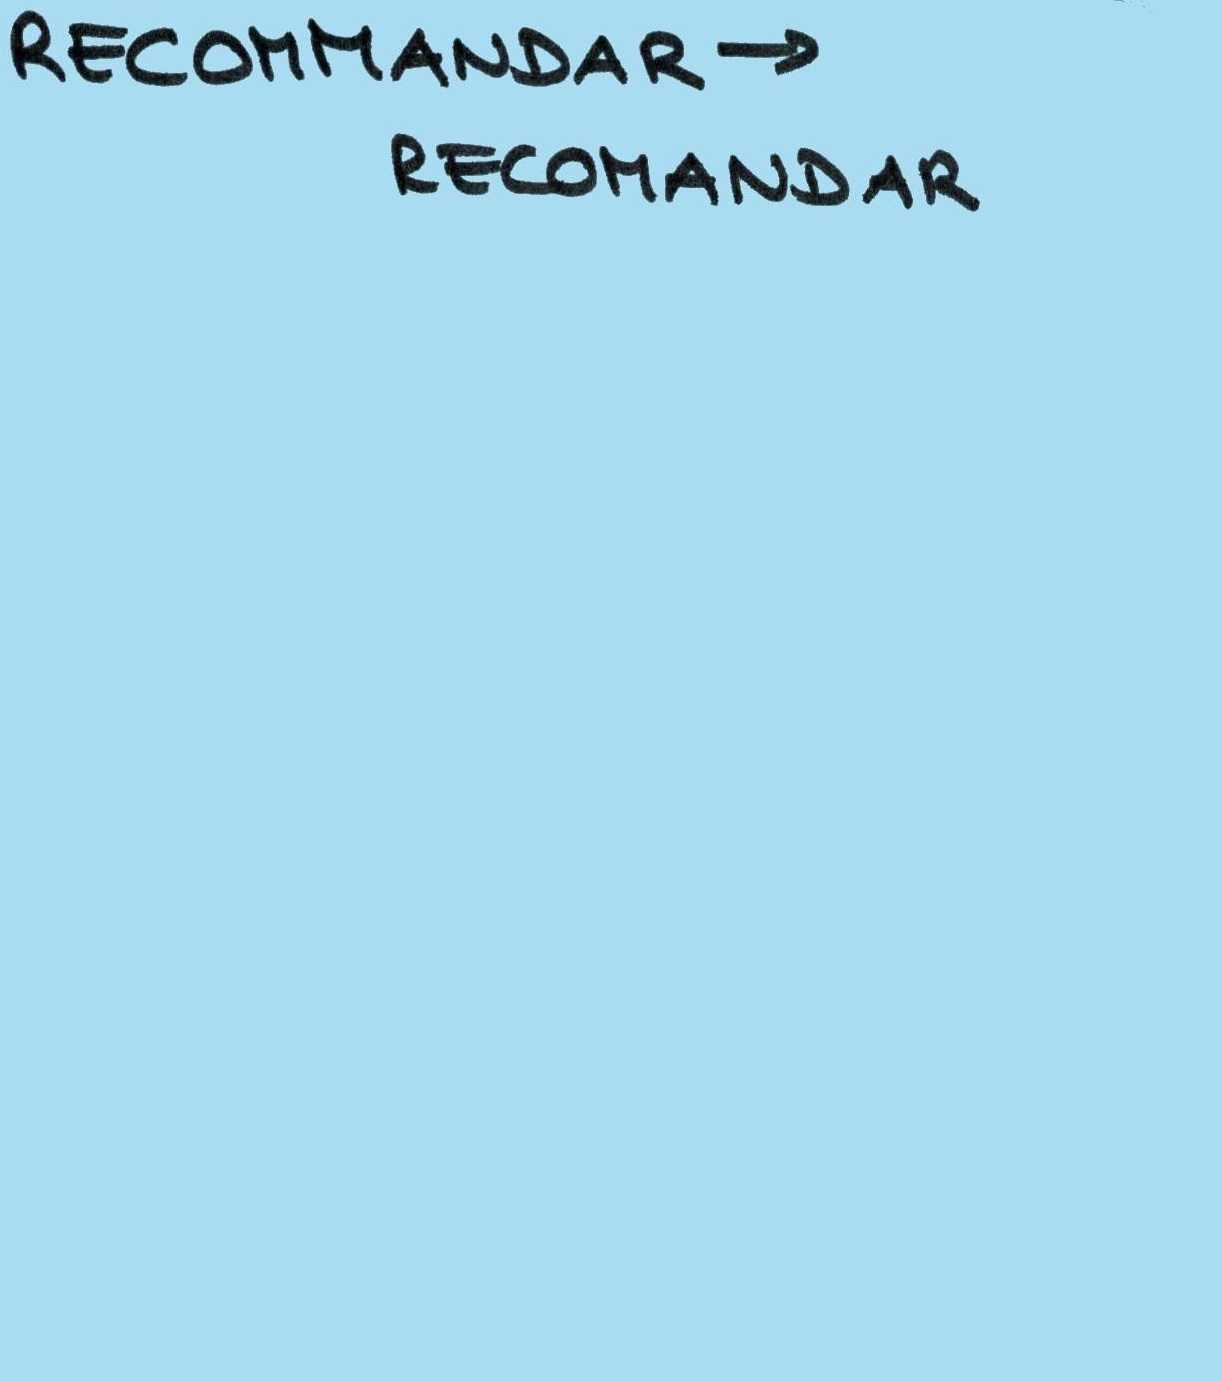 RECOMMANDAR →
RECOMANDAR